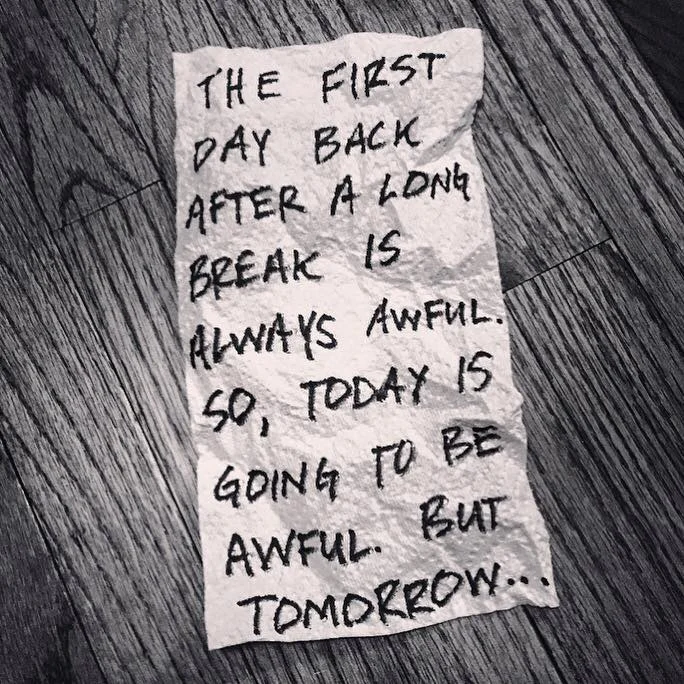 THE FIRST
DAY BACK
AFTER A LONG
BREAK IS
ALWAYS AWFUL.
SO, TODAY IS
GOING TO BE
AWFUL. BUT
TOMORROW...